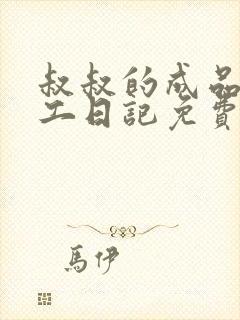 叔叔的成品
工日記免費
馬伊